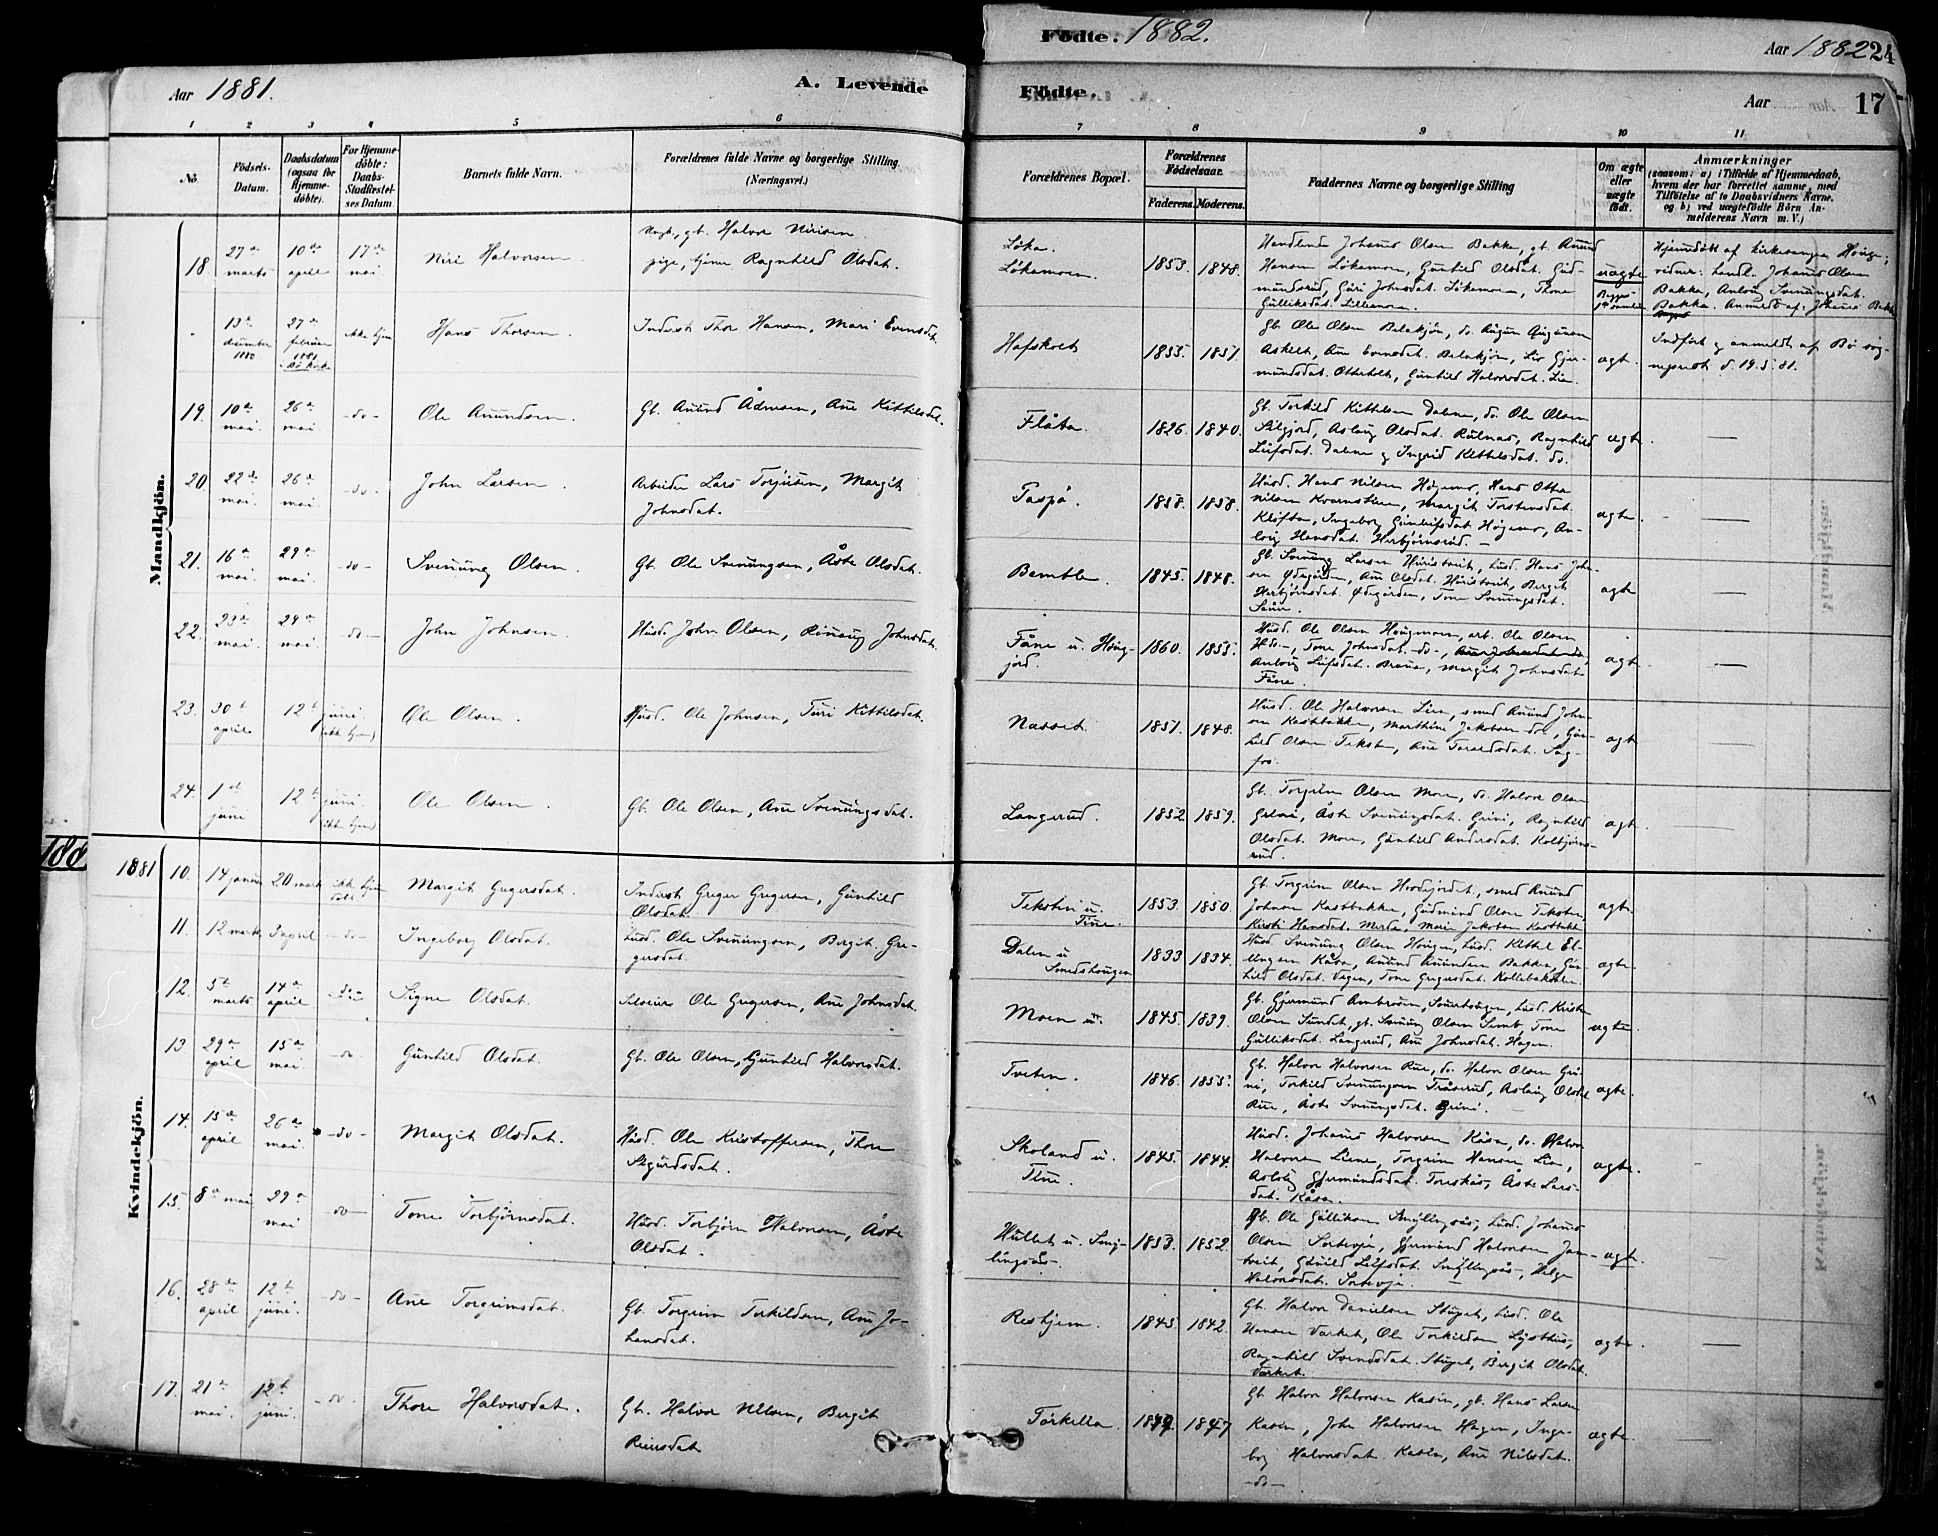 Födte. 1882.
Aar 1882 24
Aar 1881.
A. Levende
Födte.
Aar
17
1 2 3 4 5 6
7 8 9 10 11
No.
Födsels-Datum.
Daabsdatum (ogsaa for Hjemme-döbte).
For Hjemme-döbte: Daabs-Stadfæstel-ses Datum.
Barnets fulde Navn.
Forældrenes fulde Navne og borgerlige Stilling (Næringsvei.)
Forældrenes Bopæl.
Forældrenes Födselsaar.
Faderens. Moderens.
Faddernes Navne og borgerlige Stilling
Om ægte eller uægte födt.
Anmærkninger
(saasom: a) i Tilfælde af Hjemmedaab,
hvem der har forrettet samme, med
Tilföielse af to Daabsvidners Navne,
og b) ved uægtefödte Börn An-
melderens Navn m. V.)
Mandkjön.
18 27de marts 10de april 17de mai Niri Halvorsen
Ungk., gb. Halvor Nirisen
pige, tjener Ragnhild Olsdat.
Løka.
Løkamoen. 1853. 1848.
Johans Olsen Bakka, gb. Anund
Hansen Løkamoen, Gunhild Olsdat. Gud-
mundsrud, Guri Johnsdat. Løkamoen, Thone
Gulliksdat. Lillemoen.
uægte
Hjemdøbt af kirkesanger Houge;
vidner: Landh. Johans Olsen
Bakka, Anloug Svenungsdat.
Bakka. Anmeldt af: Johans Bakka
13de december 1880 27de februar 1881 Bö kirke ikke hjem Hans Thorsen
Inderst Thor Hansen, Mari Evensdat.
Hafskolt 1855. 1851.
Gb. Ole Olsen Belakjøn, do. Augun Augunsen
Askilt, Ane Evensdat. Belakjøn, Liv Gjer-
mundsdat. Otterholt, Gunhild Halvorsdat. Lien.
ægt.
Indført og anmeldt af Bø sog-
neprest d. 19.5.81.
19. 10de mai. 26de mai -do- Ole Anundsen.
Gb. Anund Admsen, Ane Kittilsdat.
Flåta. 1826. 1840.
Gb. Torkild Kittilsen Dalen, do. Ole Olsen
Selgjord, Aslaug Olsdat. Rulnas, Ragnhild
Leifsdat. Dalen og Ingrid Kittilsdat. do.
ægte. —
20. 22de mai. 26de mai. -do- John Larsen.
Arbeider Lars Torjusen, Margit
Johnsdat.
Paspø. 1858. 1858.
Husd. Hans Nilsen Høgemo, Hans Otter
Nilsen Kvernstien, Margit Torstensdat.
Kløfta, Ingeborg Gunleifsdat. Høgemo, An-
loug Hansdat. Herbjørnsrud. —
ægte. —
21. 16de mai. 29de mai. -do- Svenung Olsen.
Gb. Ole Svenungsen, Åste Olsdat.
Bemble. 1845. 1848.
Gb. Svenung Larsen Huristveit, Lusd. Hans Joh-
sen Ødegården, Ane Olsdat. Huristveit, Bergit
Herbjørnsdat. Ødegården, Tone Svenungsdat.
ægte —
22. 23de mai. 29de mai. -do- John Johnsen
Husd. John Olsen, Rønaug Johnsdat.
Fåne u. Houg-
jord. 1860. 1855.
Husd. Ole Olsen Hougmoen, arb. Ole Olsen
-do-, Tone Johnsdat. -do-,
Anloug Leifsdat. Brenna, Margit Johnsdat.
Fåne.
ægt. —
23. 30te april 12te juni. (ikke hjem) Ole Olsen.
Husd. Ole Johnsen, Turi Kittilsdat.
Nasset. 1851. 1848.
Husd. Ole Halvorsen Lien, smed Anund John-
sen Kastbakka, Marthine Jakobsen do., Gun-
hild Olsen Teksten, Ane Toraldsdat. Sag-
fos.
ægt. —
24. 1ste juni 12te juni. (ikke hjem) Ole Olsen.
Gb. Ole Olsen, Ane Svenungsdat.
Langerud. 1852 1859.
Gb. Torgrim Olsen Moen, do. Halvor Olsen
Grini, Åste Svenungsdat. Grini, Ragnhild
Olsdat. Moen, Gunhild Andersdat. Kolbjørns-
rud.
ægt. —
188
Kvindekjön.
1881 10. 14 januar 20 marts ikke hjem døbt Margit Gregersdat.
Inderst Greger Gregersen, Gunhild
Olsdat.
Teksten u.
Tine. 1853. 1850.
Gb. Torgrim Olsen Hovdejordet, smed Anund
Johnsen Kastbakka, Gudmund Olsen Teksten,
Kirsti Hansdat. Merde, Marie Jakobsen Kastbakka
ægte.
11. 12 marts 3 april -do- Ingeborg Olsdat.
Lusd. Ole Svenungsen, Bergit Gre-
gersdat.
Dalen u
Smedshougen 1833 1834.
Husd. Svenung Olsen Hougen, Lusd. Kittil El-
lingsen Kåsa, Anund Anundsen Bakka, Gun-
hild Olsdat. Vegen, Tone Gregersdat. Kollebakdalen
ægte.
12. 5te marts 14de april -do- Signe Olsdat.
Ole Gregersen, Ane Johnsdat.
Moen u. 1845. 1839.
Gb. Gjermund Ambrosen, Lusd. Kristen
Olsen Sundet, gb. Svenung Olsen Semb, Tone
Gulliksdat. Langerud, Ane Johnsdat. Hagen.
ægte.
13 29de april 15de mai. -do Gunhild Olsdat.
Gb. Ole Olsen, Gunhild Halvorsdat.
Tveten. 1846. 1855.
Gb. Halvor Halvorsen Rue, do. Halvor Olsen Gri-
ni, Torkild Svenungsen Tråserud, Aslaug Olsdat.
Rue, Åste Svenungsdat. Grini.
ægte.
14. 15de april 26de mai. -do- Margit Olsdat.
Husd. Ole Kristoffersen, Thore
Sigurdsdat.
Skoland u.
Tine. 1845. 1844.
Husd. Johans Halvorsen Kåsa, do. Halvor
Halvorsen Liene, Torgrim Hansen Lia,
Aslaug Gjermundsdat. Toreskås, Åste Lars-
dat. Kåsa.
ægte.
15. 8de mai 29de mai -do- Tone Torbjørnsdat.
Husd. Torbjørn Halvorsen, Åste
Olsdat.
Hullet u. Smy-
lingsås. 1853. 1852.
Gb. Ole Gulliksen Smyllingsås, Lusd. Johans
Olsen Sortevje, Gjermund Halvorsen Jam-
tveit, Gunild Leifsdat. Smyllingsås, Helge
Halvorsdat. Sortevje. —
ægte. —
16. 28de april 12te juni. -do- Ane Torgrimsdat.
Gb. Torgrim Torkildsen, Ane Jo-
hansdat.
Reshjem. 1845. 1842.
Gb. Halvor Danielsen Stupet, Lusd. Ole
Hansen Varket, Ole Torkildsen Lysthus,
Ragnhild Svendsdat. Stupet, Bergit Olsdat.
Varket.
ægte. —
17. 21de mai. 12te juni. -do Thore Halvorsdat.
Gb. Halvor Nilsen, Bergit
Reiersdat
Torkella. 1849. 1847
Gb. Halvor Halvorsen Kasin, gb. Hans Larsen
Kasin, John Halvorsen Hagen, Inge-
borg Halvorsdat. Kasin, Ane Nilsdat.
-do-
ægte. —